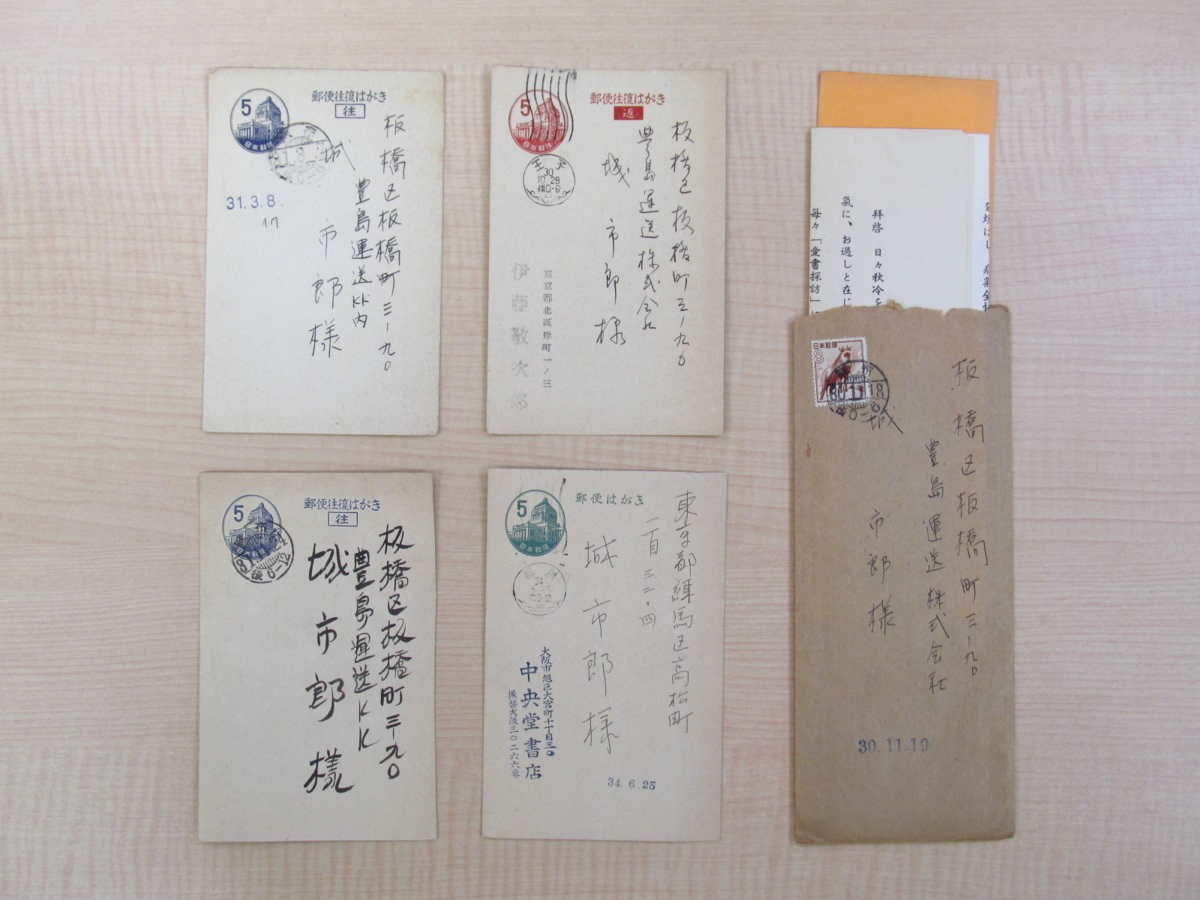 5
日本郵便
郵便往復はがき
往
板橋区板橋町三ー九〇
豊島運送KK内
城
市郎様
31.3.8.
5
郵便往復はがき
返
板橋区板橋町三ー九〇
豊島運送株式会社
城
市郎様
天王
30
10.28
後0-6
東京都北區岸町一ノ三
伊藤敬次郎
拝啓 日々秋冷を
氣に、お過しと在じ
毎々「愛書探訪」
日本郵便
8
30.11.18
板橋区板橋町三ー九〇
豊島運送株式会社
城
市郎様
30.11.19
5
日本郵便
郵便往復はがき
往
后6-12
板橋区板橋町三ー九〇
豊島運送KK
城市郎様
5
日本郵便
郵便はがき
東京都練馬区高松町
城市郎様
大阪市旭区大宮町十丁目三〇
中央堂書店
振替大阪三〇二六六番
34.6.25